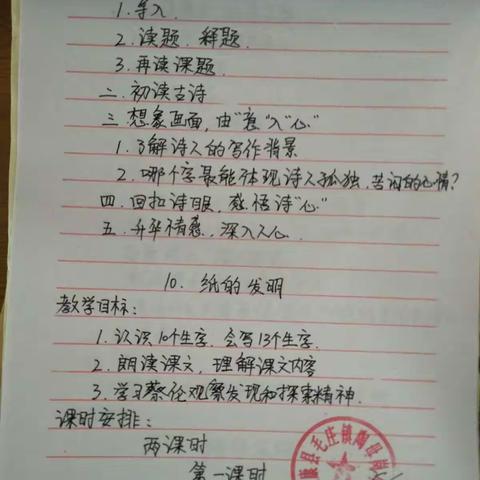 1. 导入.
2. 读题、释题.
3. 再读课题.
二. 初读古诗
三. 想象画面, 由"意"入"心"
1. 了解诗人的写作背景
2. 哪个字最能体现诗人孤独、苦闷的心情?
四. 回扣诗眼, 感悟诗"心"
五. 升华情感, 深入人心.
10. 纸的发明
教学目标:
1. 认识10个生字. 会写13个生字.
2. 朗读课文, 理解课文内容
3. 学习蔡伦观察发现和探索精神.
课时安排:
两课时
第一课时
康县毛庄镇